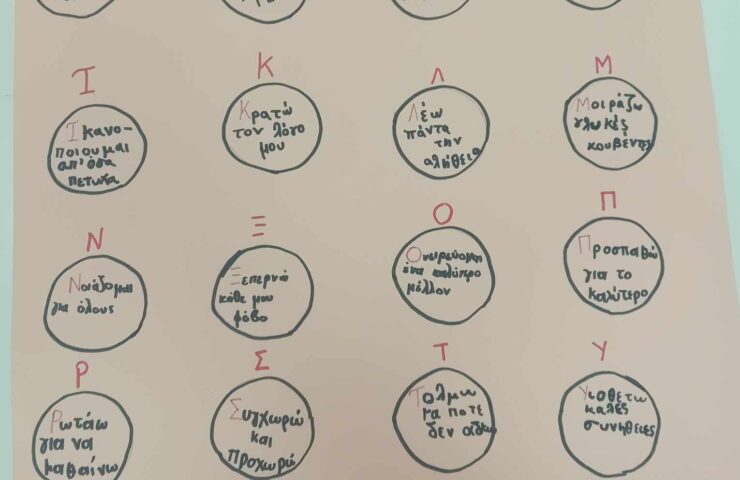 Ι
Ικανο-
ποιουμαι
απ' όσα
πετυχα
Κ
Κρατώ
τον λόγο
μου
Λ
Λέω
πάντα
την
αλήθεια
Μ
Μοιράζω
γλυκές
κουβέντες
Ν
Νοιάζομαι
για όλους
Ξ
Ξεπερνώ
κάθε μου
φόβο
Ο
Ονειρεύομαι
ένα καλύτερο
μέλλον
Π
Προσπαθώ
για το
καλύτερο
Ρ
Ρωτάω
για να
μαθαίνω
Σ
Συγχωρώ
και
προχωρώ
Τ
Τολμω
ποτε
δεν
Υ
Υιοθετώ
καλές
συνήθειες